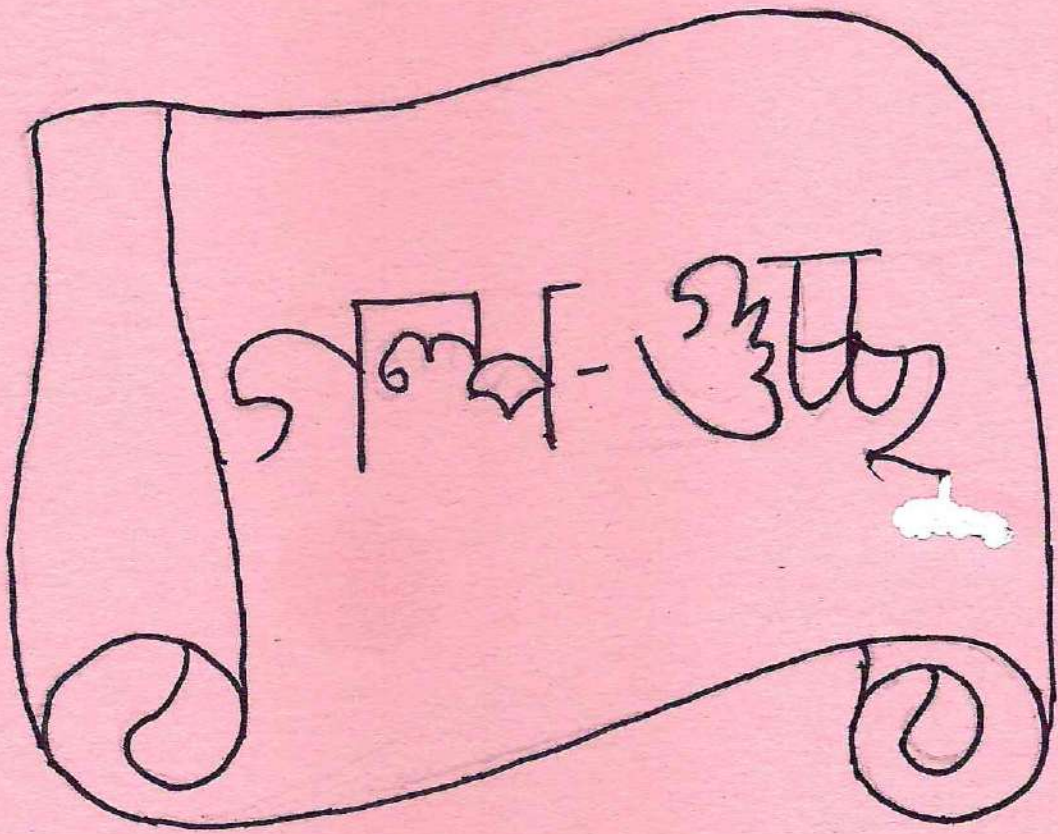 গল্প-গুচ্ছ